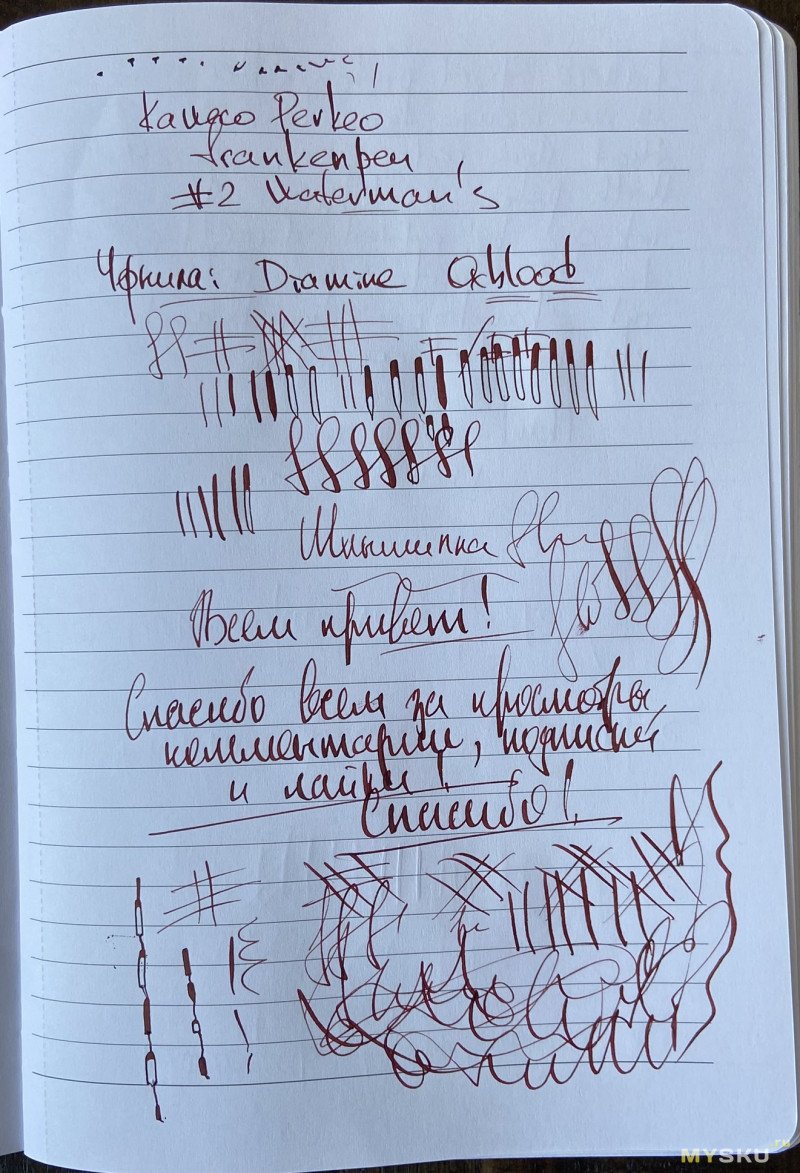 Kaweco Perkeo
Frankenpen
#2 Waterman's
Чернила: Diamine Oxblood
Шиншилла
Всем привет!
Спасибо всем за просмотры,
комментарии, подписки
и лайки!
Спасибо!
MYSKU.ru